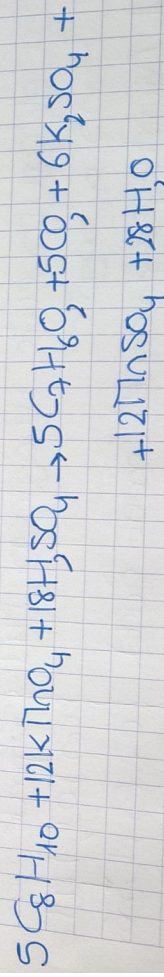 5C₈H₁₀ + 12KMnO₄ + 18H₂SO₄ → 5C₇H₆O₂ + 5CO₂ + 6K₂SO₄ +
+ 12MnSO₄ + 28H₂O